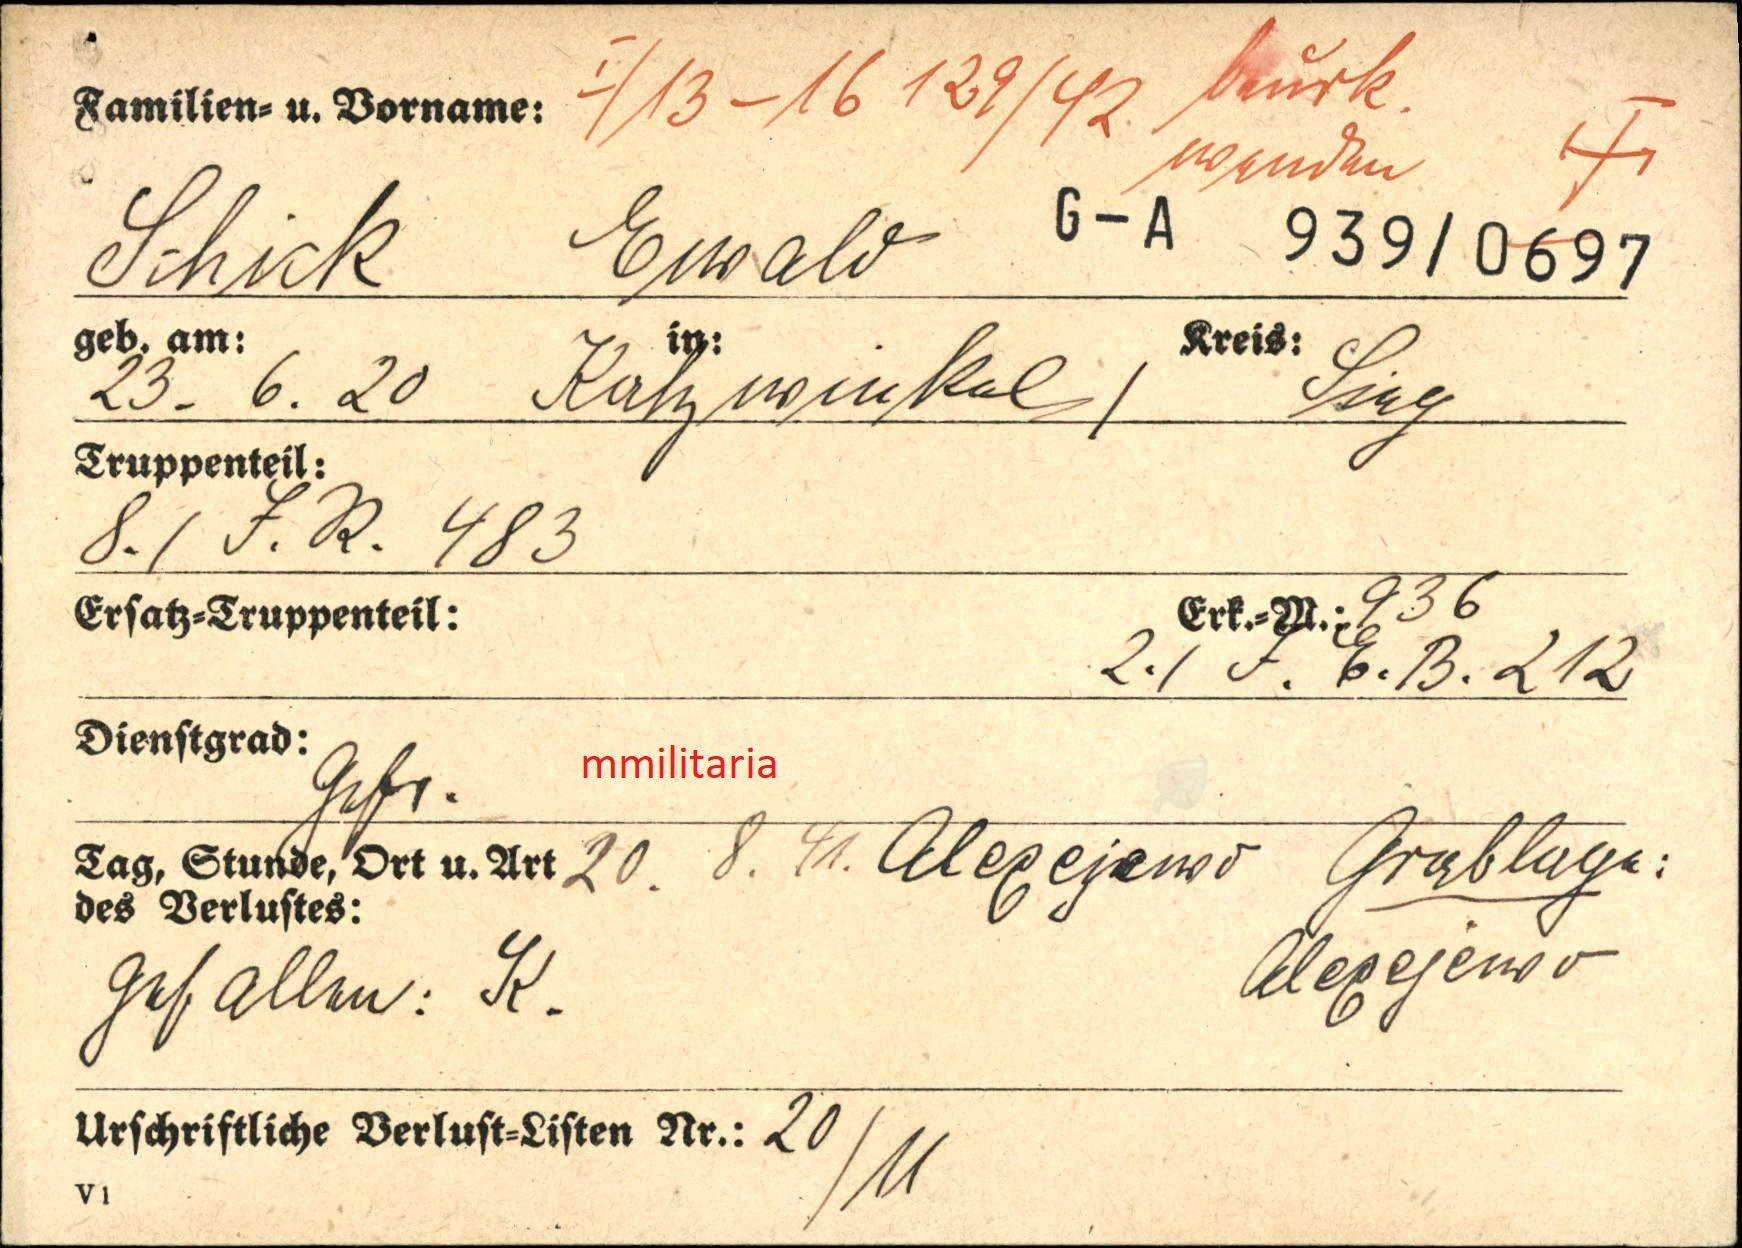 Familien- u. Vorname: I/13-16 129/42 beurk.
wenden
Schick Ewald G-A 939/0697
geb. am: in: Kreis:
23. 6. 20 Katzwinkel / Sieg
Truppenteil:
8./ I.R. 483
Ersatz-Truppenteil: Erk.-M.: 936
2./ I.E.B. 212
Dienstgrad:
Gefr.
mmilitaria
Tag, Stunde, Ort u. Art 20. 8. 41. Alexejewo Grablage:
des Verlustes:
gefallen: K. Alexejewo
Urschriftliche Verlust-Listen Nr.: 20/11
V 1